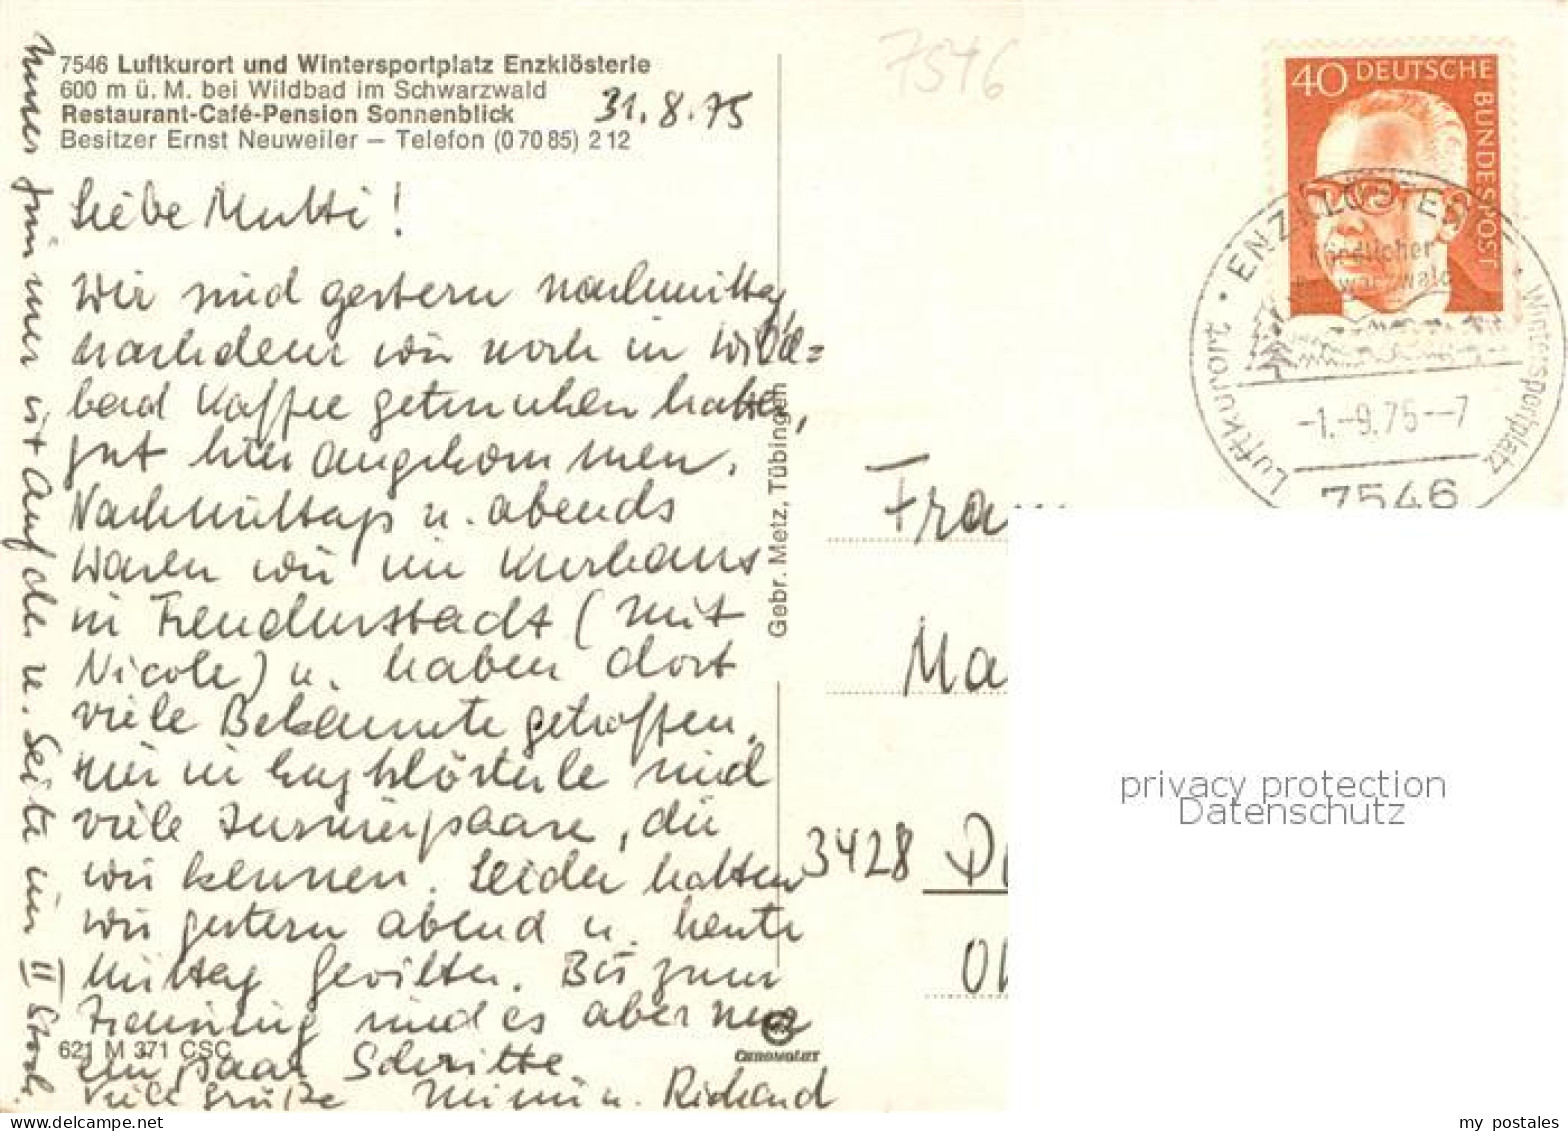 7546 Luftkurort und Wintersportplatz Enzklösterle
600 m ü. M. bei Wildbad im Schwarzwald
Restaurant-Café-Pension Sonnenblick
Besitzer Ernst Neuweiler — Telefon (0 70 85) 2 12
31.8.75
Liebe Mutti!
Wir sind gestern nachmittag,
nachdem wir noch in Wild=
bad Kaffee getrunken hatten,
gut hier angekommen.
Nachmittags u. abends
waren wir im Kurhaus
in Freudenstadt (mit
Nicole) u. haben dort
viele Bekannte getroffen.
Hier in Enzklösterle sind
viele Turnierpaare, die
wir kennen. Leider hatten
wir gestern abend u. heute
Mittag Gewitter. Bis zum
Training sind es aber nur
ein paar Schritte
Viele Grüße Mimi u. Richard
Unser Zimmer ist auf der u. Seite im II Stock.
621 M 371 CSC
Gebr. Metz, Tübingen
7546
40 DEUTSCHE BUNDESPOST
ENZKLÖSTERLE
Nördlicher
Schwarzwald
Luftkurort
Wintersportplatz
-1.-9.75--7
7546
Frau
Ma
3428 D
privacy protection
Datenschutz
my postales